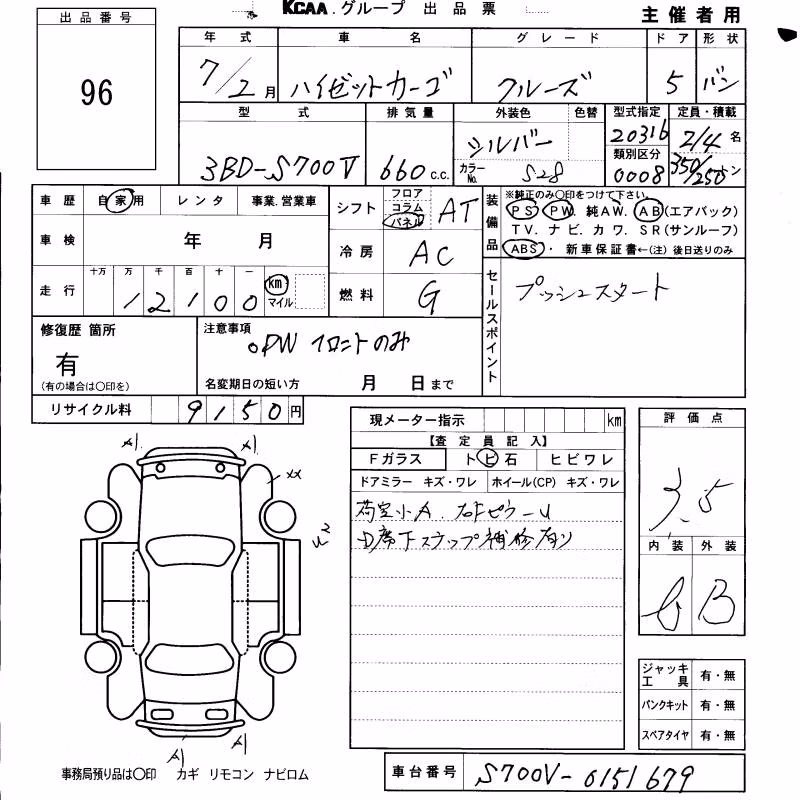 KCAA.グループ 出品票
主催者用
出品番号
96
年式 車名 グレード ドア 形状
7/2月 ハイゼットカーゴ クルーズ 5 バン
型式 排気量 外装色 色替 型式指定 定員・積載
3BD-S700V 660c.c. シルバー 20316 2/4名
カラーNo. S28 類別区分 0008 350/250トン
車歴 自家用 レンタ 事業.営業車
シフト フロア コラム パネル AT
装備品 ※純正のみ〇印をつけて下さい。
PS PW 純AW. AB(エアバック)
TV. ナビ. カワ. SR(サンルーフ)
ABS・ 新車保証書←(注) 後日送りのみ
車検 年 月
冷房 AC
走行 十万 万 千 百 十 一
12100 km マイル
燃料 G
セールスポイント プッシュスタート
修復歴 箇所
有
(有の場合は〇印を)
注意事項
。PW フロントのみ
名変期日の短い方 月 日まで
リサイクル料 9150円
現メーター指示 km
【査定員記入】
Fガラス トビ石 ヒビワレ
ドアミラー キズ・ワレ ホイール(CP) キズ・ワレ
荷室小A. 右Fピラーu
D席下ステップ補修有り
評価点
3.5
内装 外装
B
A1 A1
xx
u2
A1 A1
ジャッキ工具 有・無
パンクキット 有・無
スペアタイヤ 有・無
事務局預り品は〇印 カギ リモコン ナビロム
車台番号 S700V-0151679